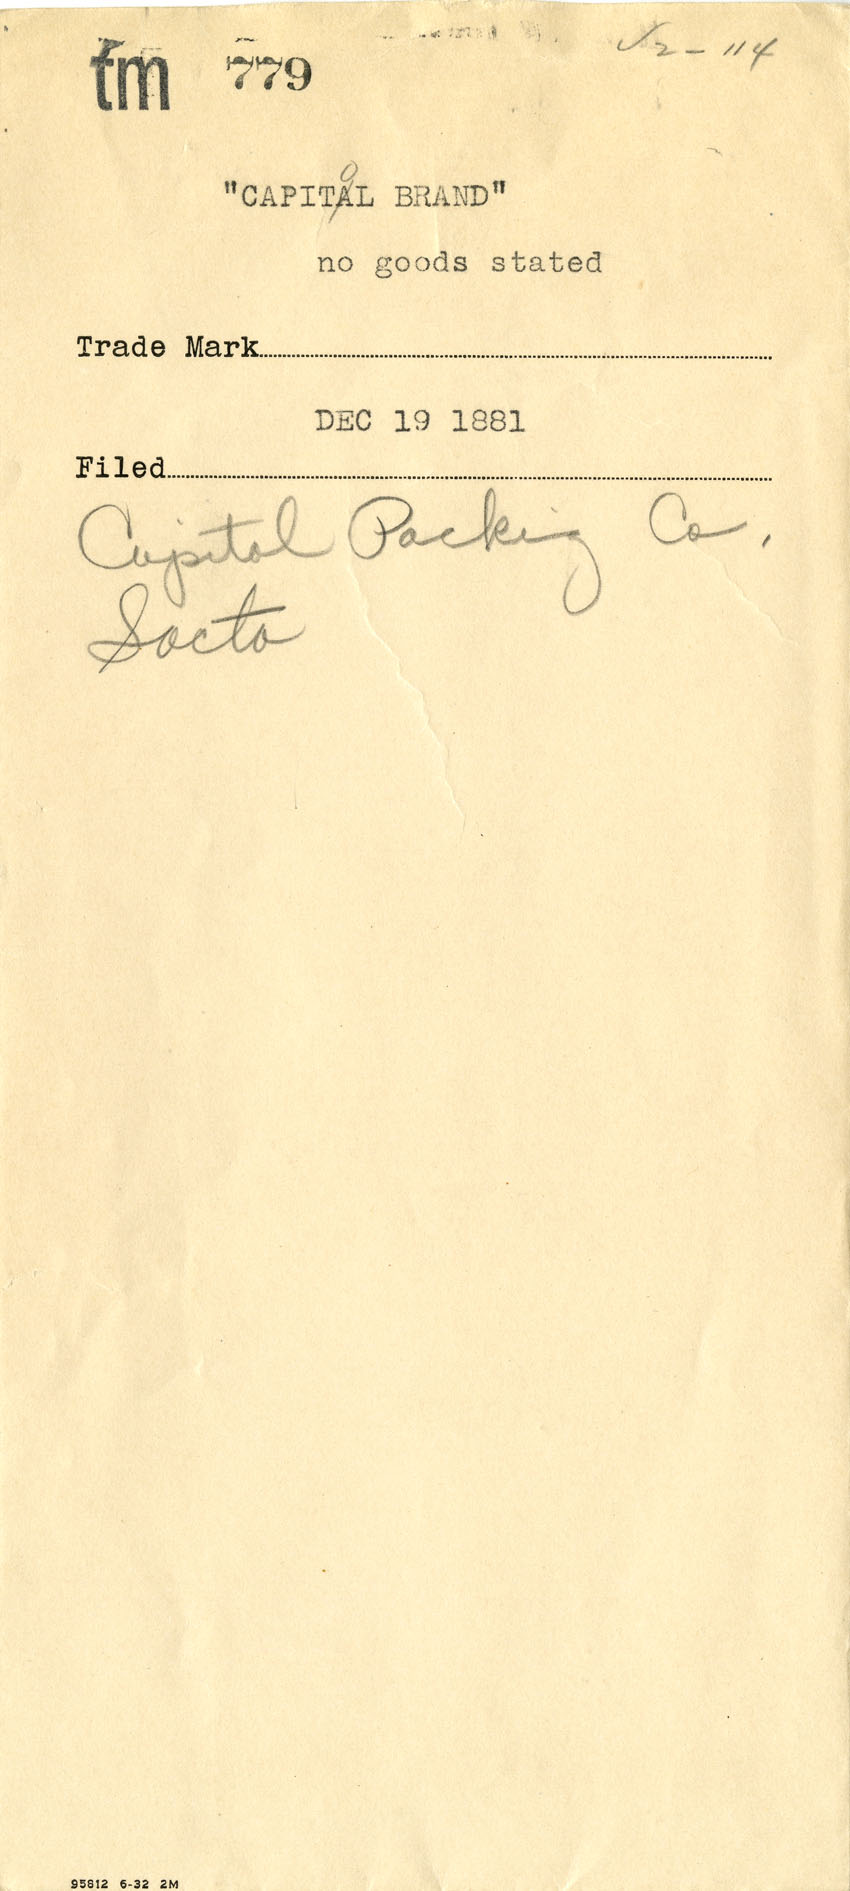 tm 779
√2-114
"CAPITAL BRAND"
o
no goods stated
Trade Mark
DEC 19 1881
Filed
Capital Packing Co.
Sacto
95812 6-32 2M